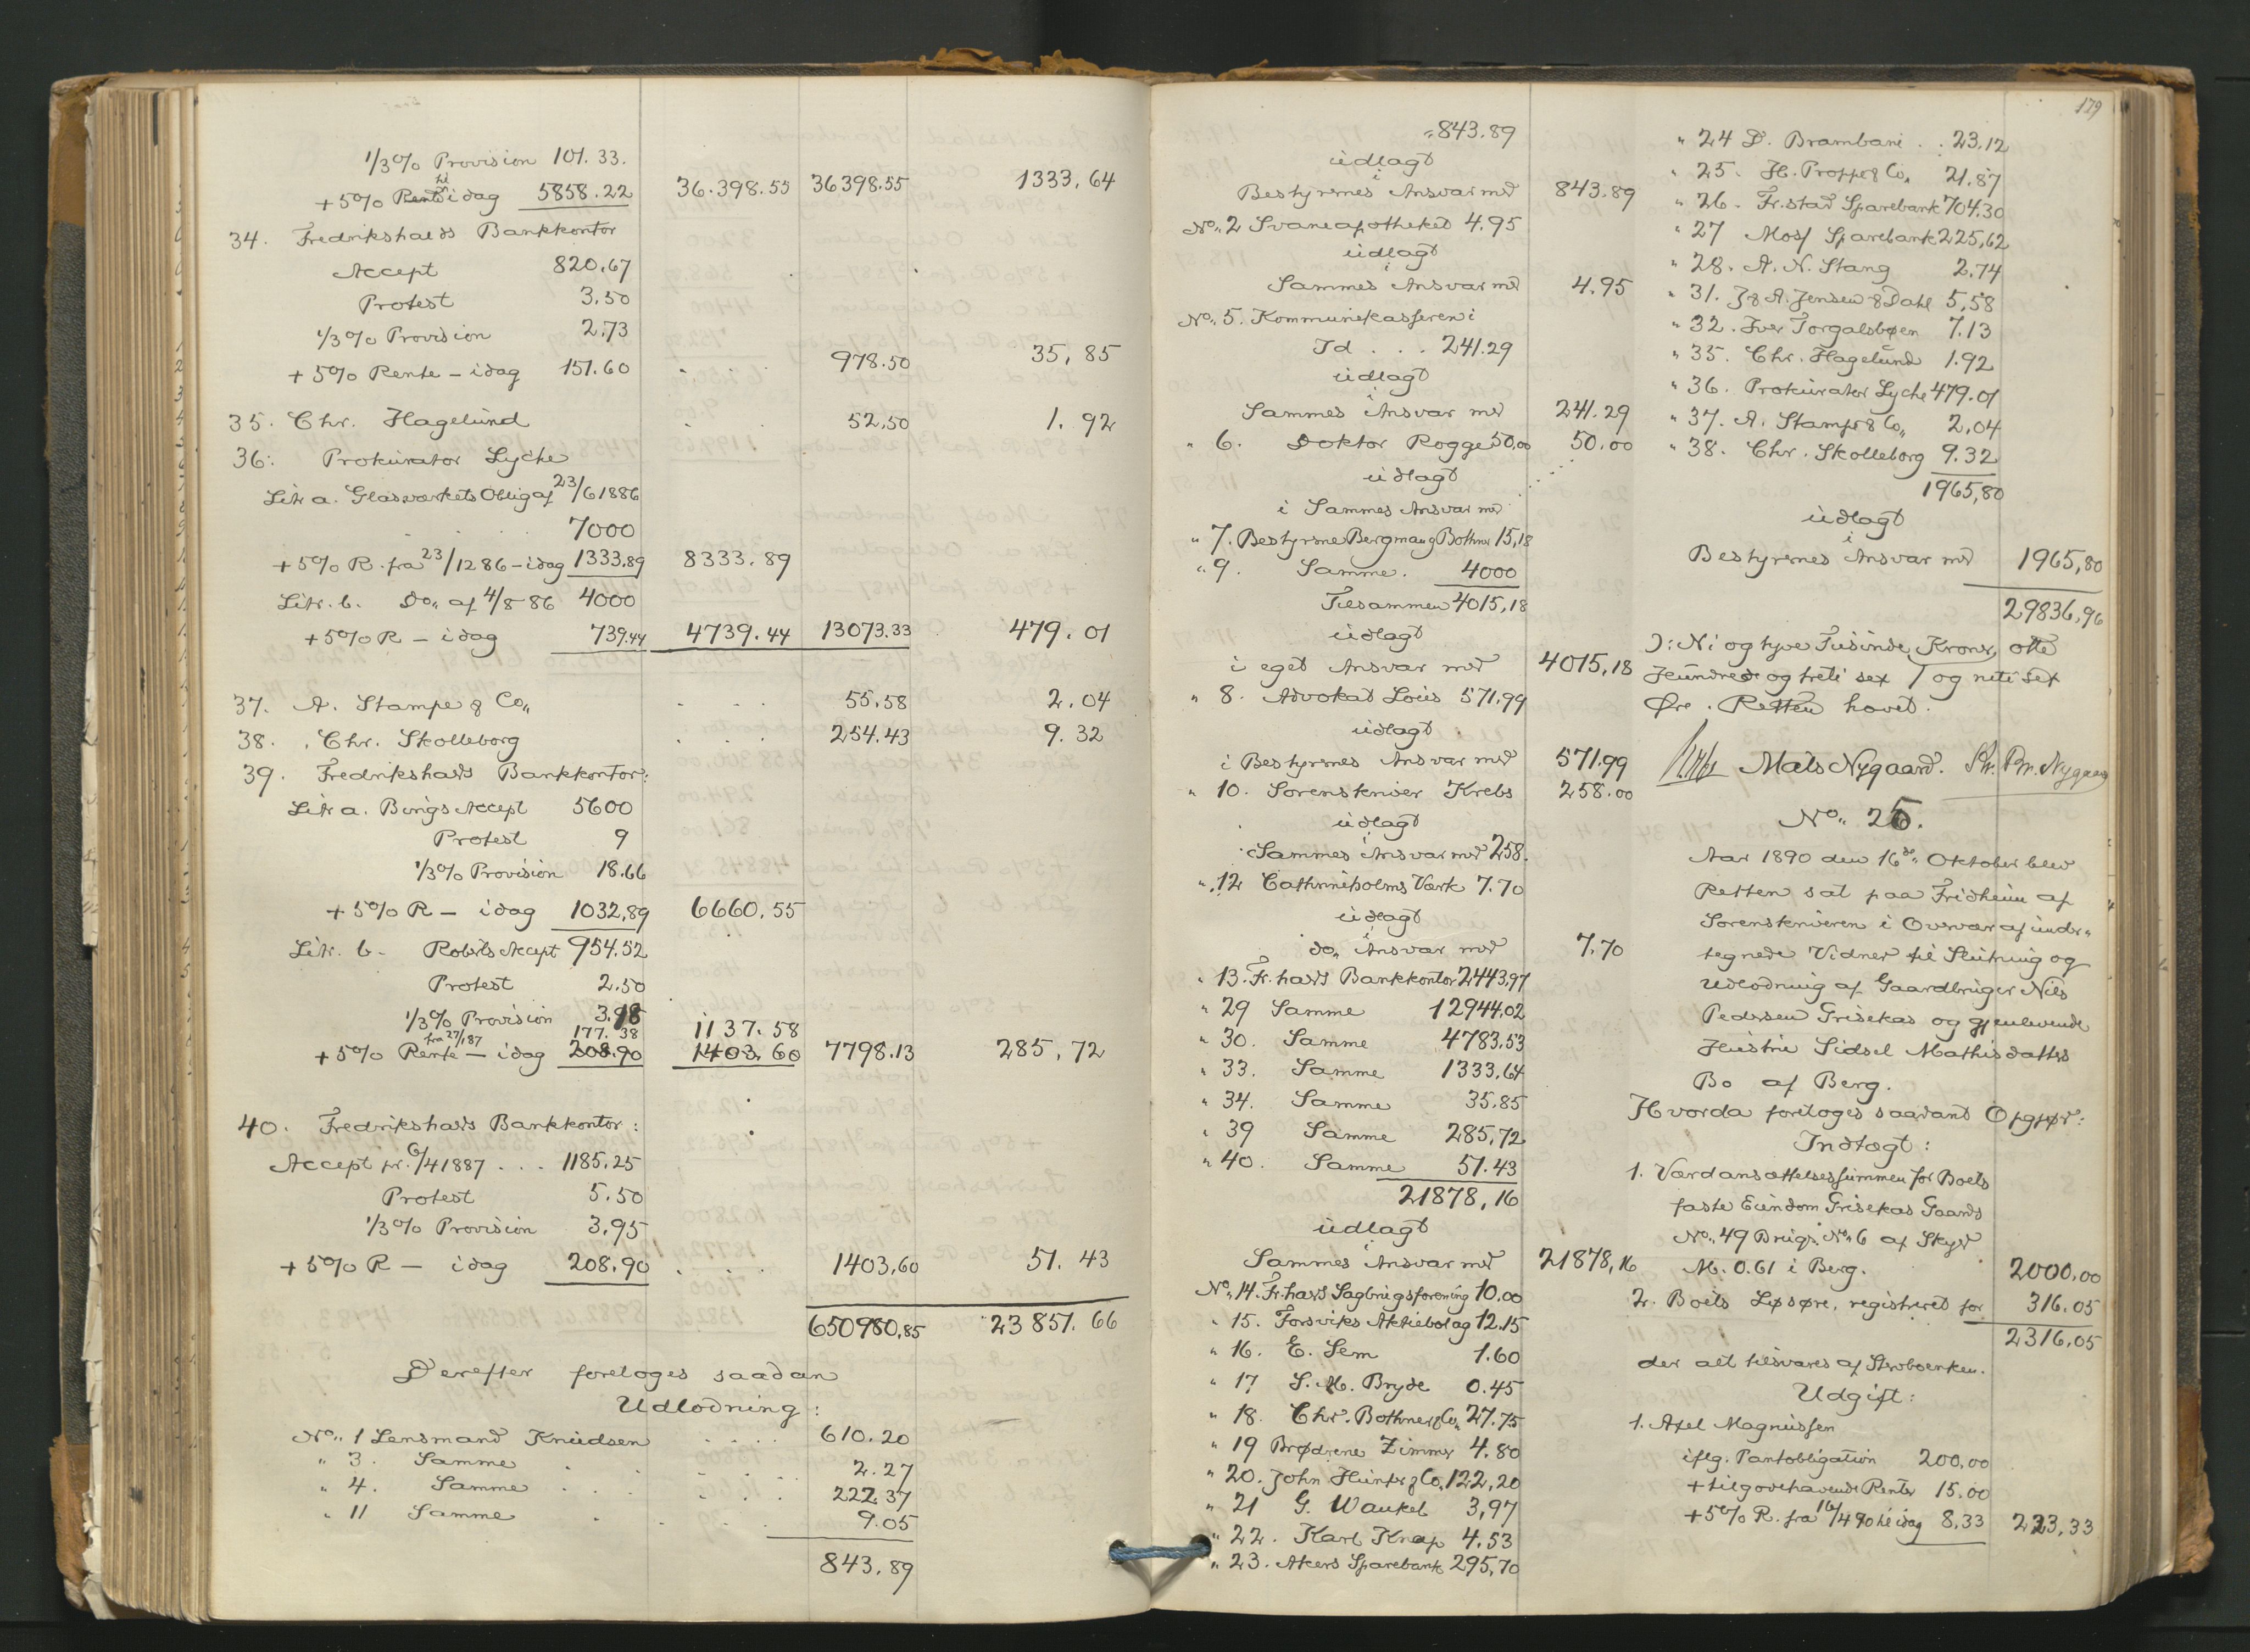 1/3% Provision 101.33.
+5% Rente til idag 5858.22 36.398.55 36398.55 1333.64
34. Fredrikshalds Bankkontor
Accept 820.67
Protest 3.50
1/3% Provision 2.73
+5% Rente - idag 151.60 978.50 35,85
35. Chr. Hagelund 52,50 1.92
36: Prokurator Lyche
Litr a. Glasværkets Oblig af 23/6 1886
7000
+5% R. fra 23/12 86 - idag 1333.89 8333.89
Litr. b. Do,, af 4/8-86 4000
+5% R - idag 739.44 4739.44 13073.33 479.01
37. A. Stampe & Co,, 55,58 2.04
38. Chr. Skolleborg 254.43 9.32
39. Fredrikshalds Bankkontor:
Litr a. Bings Accept 5600
Protest 9
1/3% Provision 18.66
+5% R - idag 1032,89 6660.55
Litr. b- Roberts Accept 954.52
Protest 2.50
1/3% Provision 3.18
fra 27/1 87 177.38 1137.58
+5% Rente - idag 208.90 1403.60 7798.13 285,72
40. Fredrikshalds Bankkontor:
Accept pr. 6/4 1887 . . . 1185.25
Protest 5.50
1/3% Provision 3,95
+5% R - idag 208.90 1403,60 51.43
650980,85 23851.66
Derefter foretoges saadan
Udlodning:
No,, 1 Lensmand Knudsen 610.20
" 3. Samme 2.27
" 4. Samme 222.37
" 11 Samme 9.05
843.89
179
"843.89
udlagt
Bestyrernes i Ansvar med 843.89
No,, 2 Svaneapotheket 4.95
udlagt
Sammes i Ansvar med 4.95
No,, 5. Kommunekasseren i
Id . . . 241.29
udlagt
Sammes i Ansvar med 241.29
" 6. Doktor Rogge 50,00 50.00
udlagt
i Sammes Ansvar med
" 7. Bestyrerne Bergman og Bothner 15,18
" 9. Samme. 4000
Tilsammen 4015,18
udlagt
i eget Ansvar med 4015,18
" 8. Advokat Lous 571,99
udlagt
i Bestyrernes Ansvar med 571.99
" 10. Sorenskriver Krebs 258.00
udlagt
Sammes i Ansvar med 258.
" 12 Cathrineholms Værk 7.70
udlagt
do,, i Ansvar med 7.70
" 13. Fr.halds Bankkontor 2443,97
" 29 Samme 12944.02
" 30. Samme 4783,53
" 33. Samme 1333,64
" 34. Samme 35.85
" 39 Samme 285,72
" 40. Samme 51.43
21878,16
udlagt
Sammes i Ansvar med 21878,16
No,, 14. Fr.halds Sagbrugsforening 10,00
" 15. Forsviks Aktiebolag 12.15
" 16. E. Sem 1.60
" 17 S. M. Bryde 0.45
" 18. Chr. Bothner & Co,, 27.75
" 19 Brødrene Zimmer 4.80
" 20. John Hunter & Co. 122,20
" 21 G. Wankel 3,97
" 22. Karl Knap 4.53
" 23. Akers Sparebank 295,70
" 24 D. Brambani . . 23,12
" 25. H. Propper & Co,, 21.87
" 26. Fr.stad Sparebank 704,30
" 27 Moss Sparebank 225,62
" 28. A. N. Stang 2.74
" 31. J & A. Jensen & Dahl 5,58
" 32. Iver Torgalsbøen 7.13
" 35. Chr. Hagelund 1.92
" 36. Prokurator Lyche 479.01
" 37. A. Stampe & Co,, 2,04
" 38. Chr. Skolleborg 9.32
1965,80
udlagt
Bestyrernes i Ansvar med 1965,80
29836,96
ɔ: Ni og tyve Tusinde Kroner, otte
Hundrede og treti sex / og niti sex
Øre. Retten hævet.
Krebs Mats Nygaard. Kr. Pr. Nygaard
No,, 25.
Aar 1890 den 16de,, Oktober blev
Retten sat paa Fridheim af
Sorenskriveren i Overvær af under-
tegnede Vidner til Slutning og
Udlodning af Gaardbruger Nils
Pedersen Grisekas og gjenlevende
Hustru Sidsel Mathisdatters
Bo af Berg.
Hvorda foretoges saadant Opgjør:
Indtægt:
1. Værdansættelsessummen for Boets
faste Eiendom Grisekas Gaards
No,, 49 Brugs No,, 6 af Skyld
M. 0.61 i Berg. 2000,00
2. Boets Løsøre, registreret for 316.05
2316,05
der alt tilsvares af Stervboenken.
Udgift:
1. Axel Magnussen
iflg. Pantobligation 200,00
+ tilgodehavende Renter 15.00
+5% R. fra 16/4 90 til idag 8,33 223,33